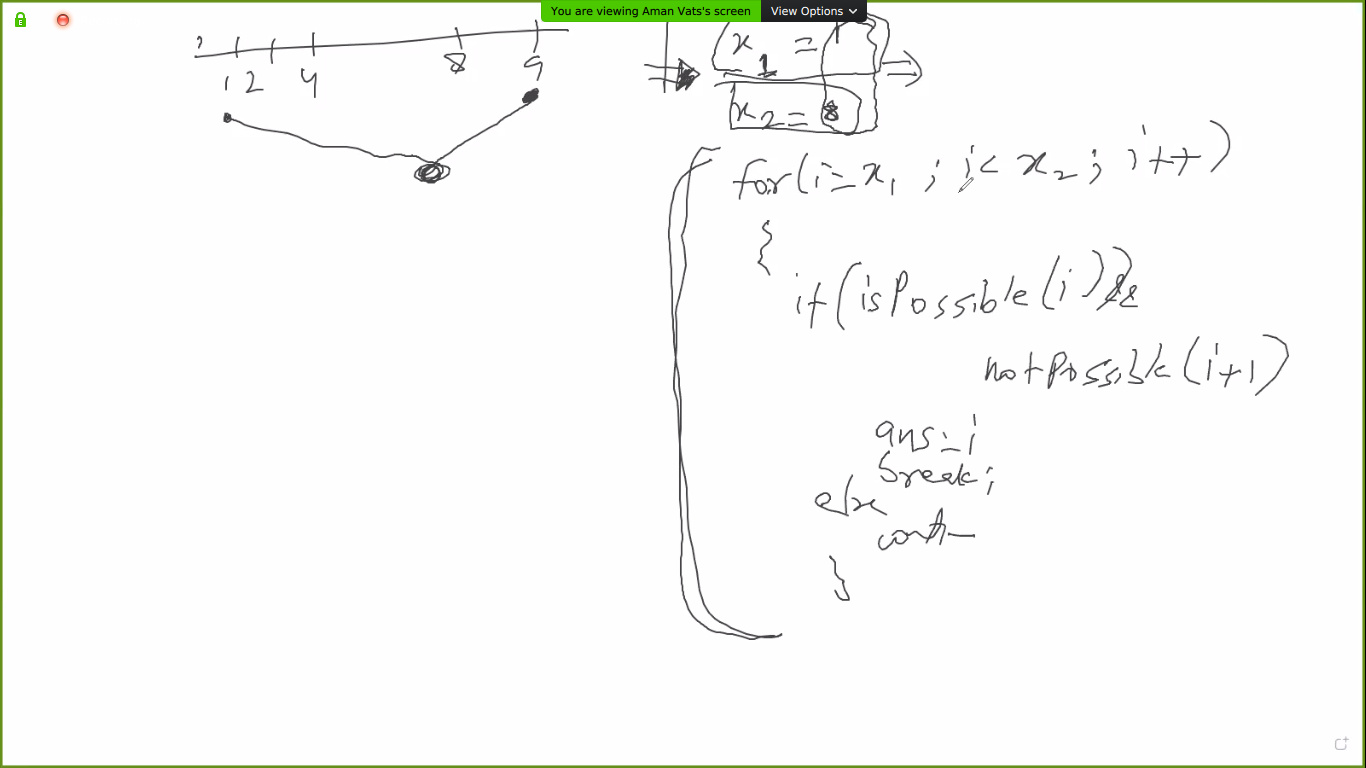 You are viewing Aman Vats's screen View Options
1 2 4 8 9
x1 = 1
x2 = 8
for(i=x1 ; i< x2 ; i++)
{
if(isPossible(i) &&
notPossible(i+1)
ans=i
break;
else
}